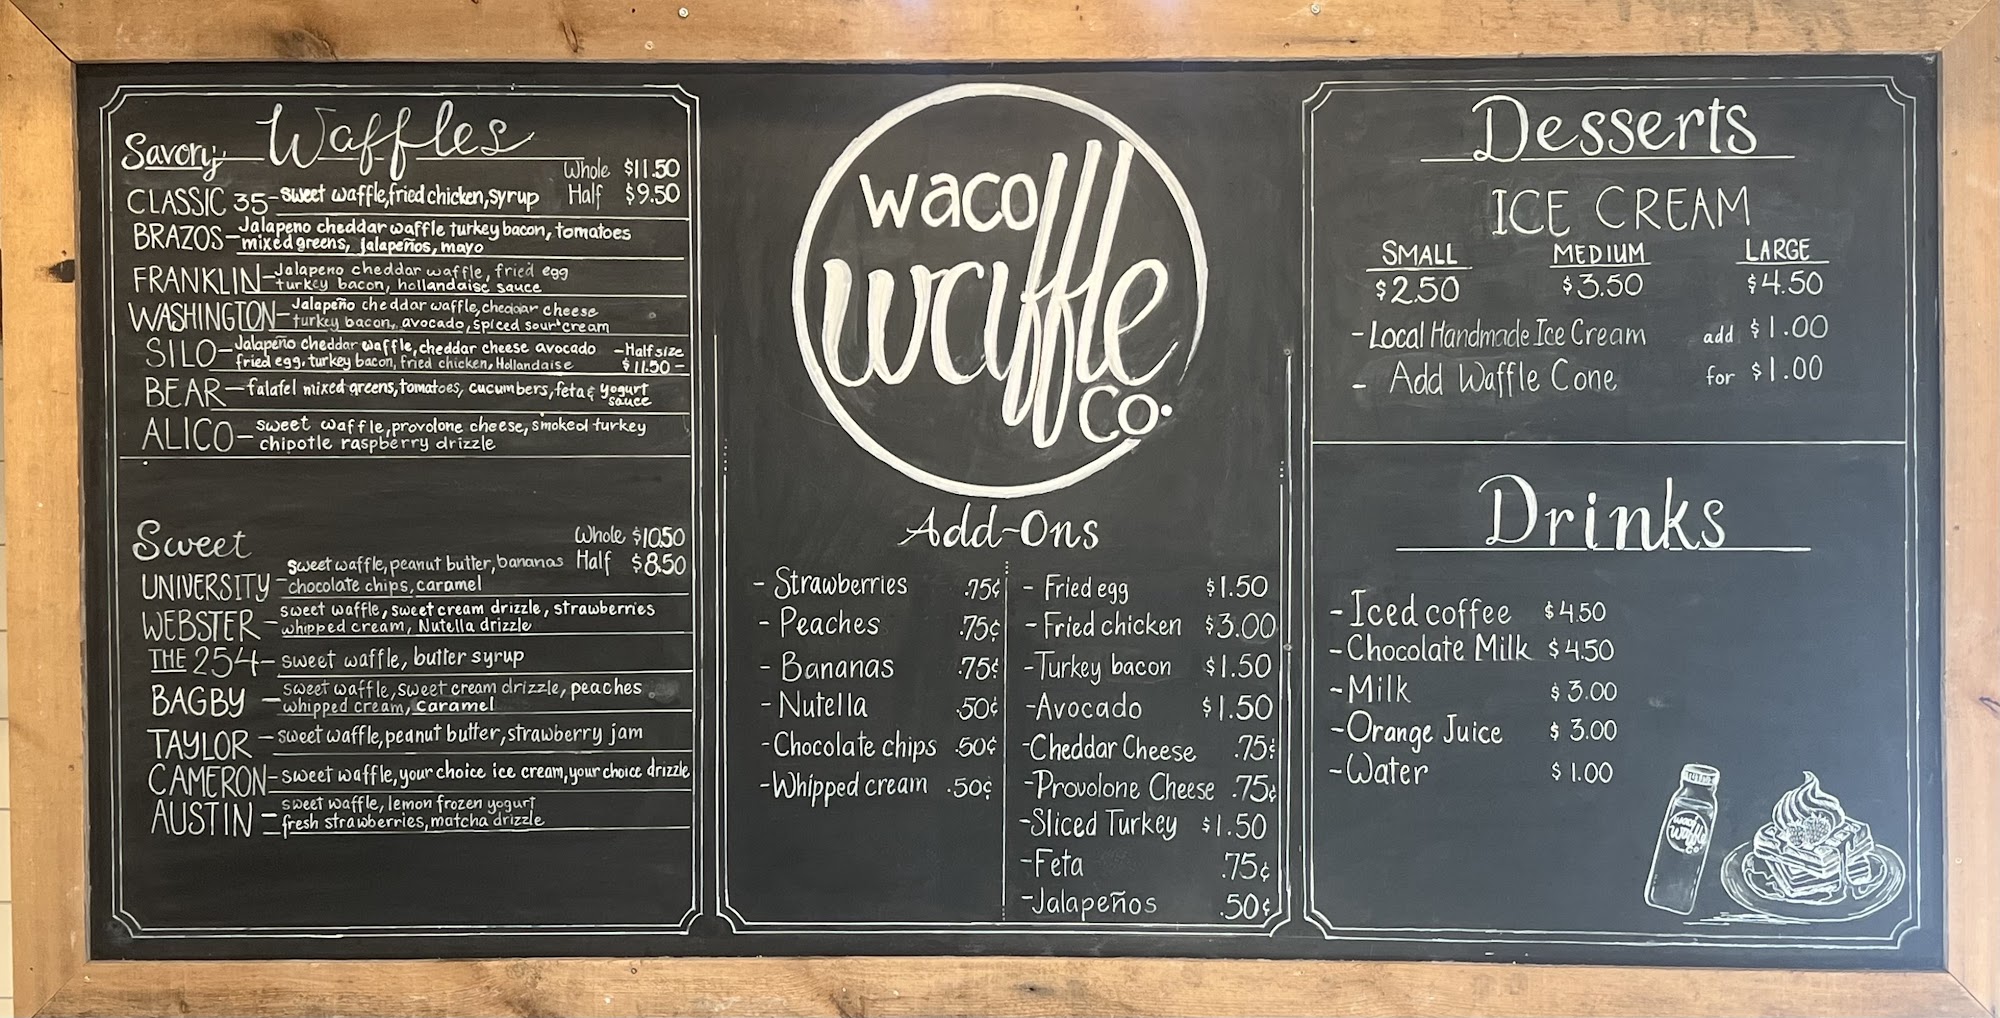 Waffles
Savory
Whole $11.50
Half $9.50
CLASSIC 35 - sweet waffle, fried chicken, syrup
BRAZOS - Jalapeno cheddar waffle turkey bacon, tomatoes
mixed greens, jalapeños, mayo
FRANKLIN - Jalapeno cheddar waffle, fried egg
turkey bacon, hollandaise sauce
WASHINGTON - Jalapeño cheddar waffle, cheddar cheese
turkey bacon, avocado, spiced sour cream
SILO - Jalapeño cheddar waffle, cheddar cheese avocado - Half size
fried egg, turkey bacon, fried chicken, Hollandaise $11.50 -
BEAR - falafel mixed greens, tomatoes, cucumbers, feta & yogurt
sauce
ALICO - sweet waffle, provolone cheese, smoked turkey
chipotle raspberry drizzle
Sweet
Whole $10.50
Half $8.50
UNIVERSITY - sweet waffle, peanut butter, bananas
chocolate chips, caramel
WEBSTER - sweet waffle, sweet cream drizzle, strawberries
whipped cream, Nutella drizzle
THE 254 - sweet waffle, butter syrup
BAGBY - sweet waffle, sweet cream drizzle, peaches
whipped cream, caramel
TAYLOR - sweet waffle, peanut butter, strawberry jam
CAMERON - sweet waffle, your choice ice cream, your choice drizzle
AUSTIN - sweet waffle, lemon frozen yogurt
fresh strawberries, matcha drizzle
waco
waffle
co.
Add-Ons
- Strawberries .75¢
- Peaches .75¢
- Bananas .75¢
- Nutella .50¢
- Chocolate chips .50¢
- Whipped cream .50¢
- Fried egg $1.50
- Fried chicken $3.00
- Turkey bacon $1.50
- Avocado $1.50
- Cheddar Cheese .75¢
- Provolone Cheese .75¢
- Sliced Turkey $1.50
- Feta .75¢
- Jalapeños .50¢
Desserts
ICE CREAM
SMALL MEDIUM LARGE
$2.50 $3.50 $4.50
- Local Handmade Ice Cream add $1.00
- Add Waffle Cone for $1.00
Drinks
- Iced coffee $4.50
- Chocolate Milk $4.50
- Milk $3.00
- Orange Juice $3.00
- Water $1.00
waco
waffle
co.